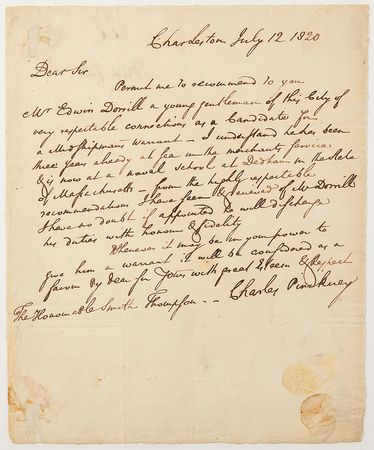 Charleston July 12 1820
Dear Sir
Permit me to recommend to you
Mr Edwin Dorrill a young gentleman of this City of
very respectable connections as a Candidate for
a Midshipmans Warrant – I understand he has been
three years already at sea in the merchants service
& is now at a naval school at Dedham in the State
of Massachusetts – from the highly respectable
recommendations I have seen & received of Mr Dorrill
I have no doubt if appointed he will discharge
his duties with honour & fidelity
Whenever it may be in your power to
give him a warrant it will be considered as a
favour By dear Sir Yours with great Esteem & Respect
The Honourable Smith Thompson – – Charles Pinckney